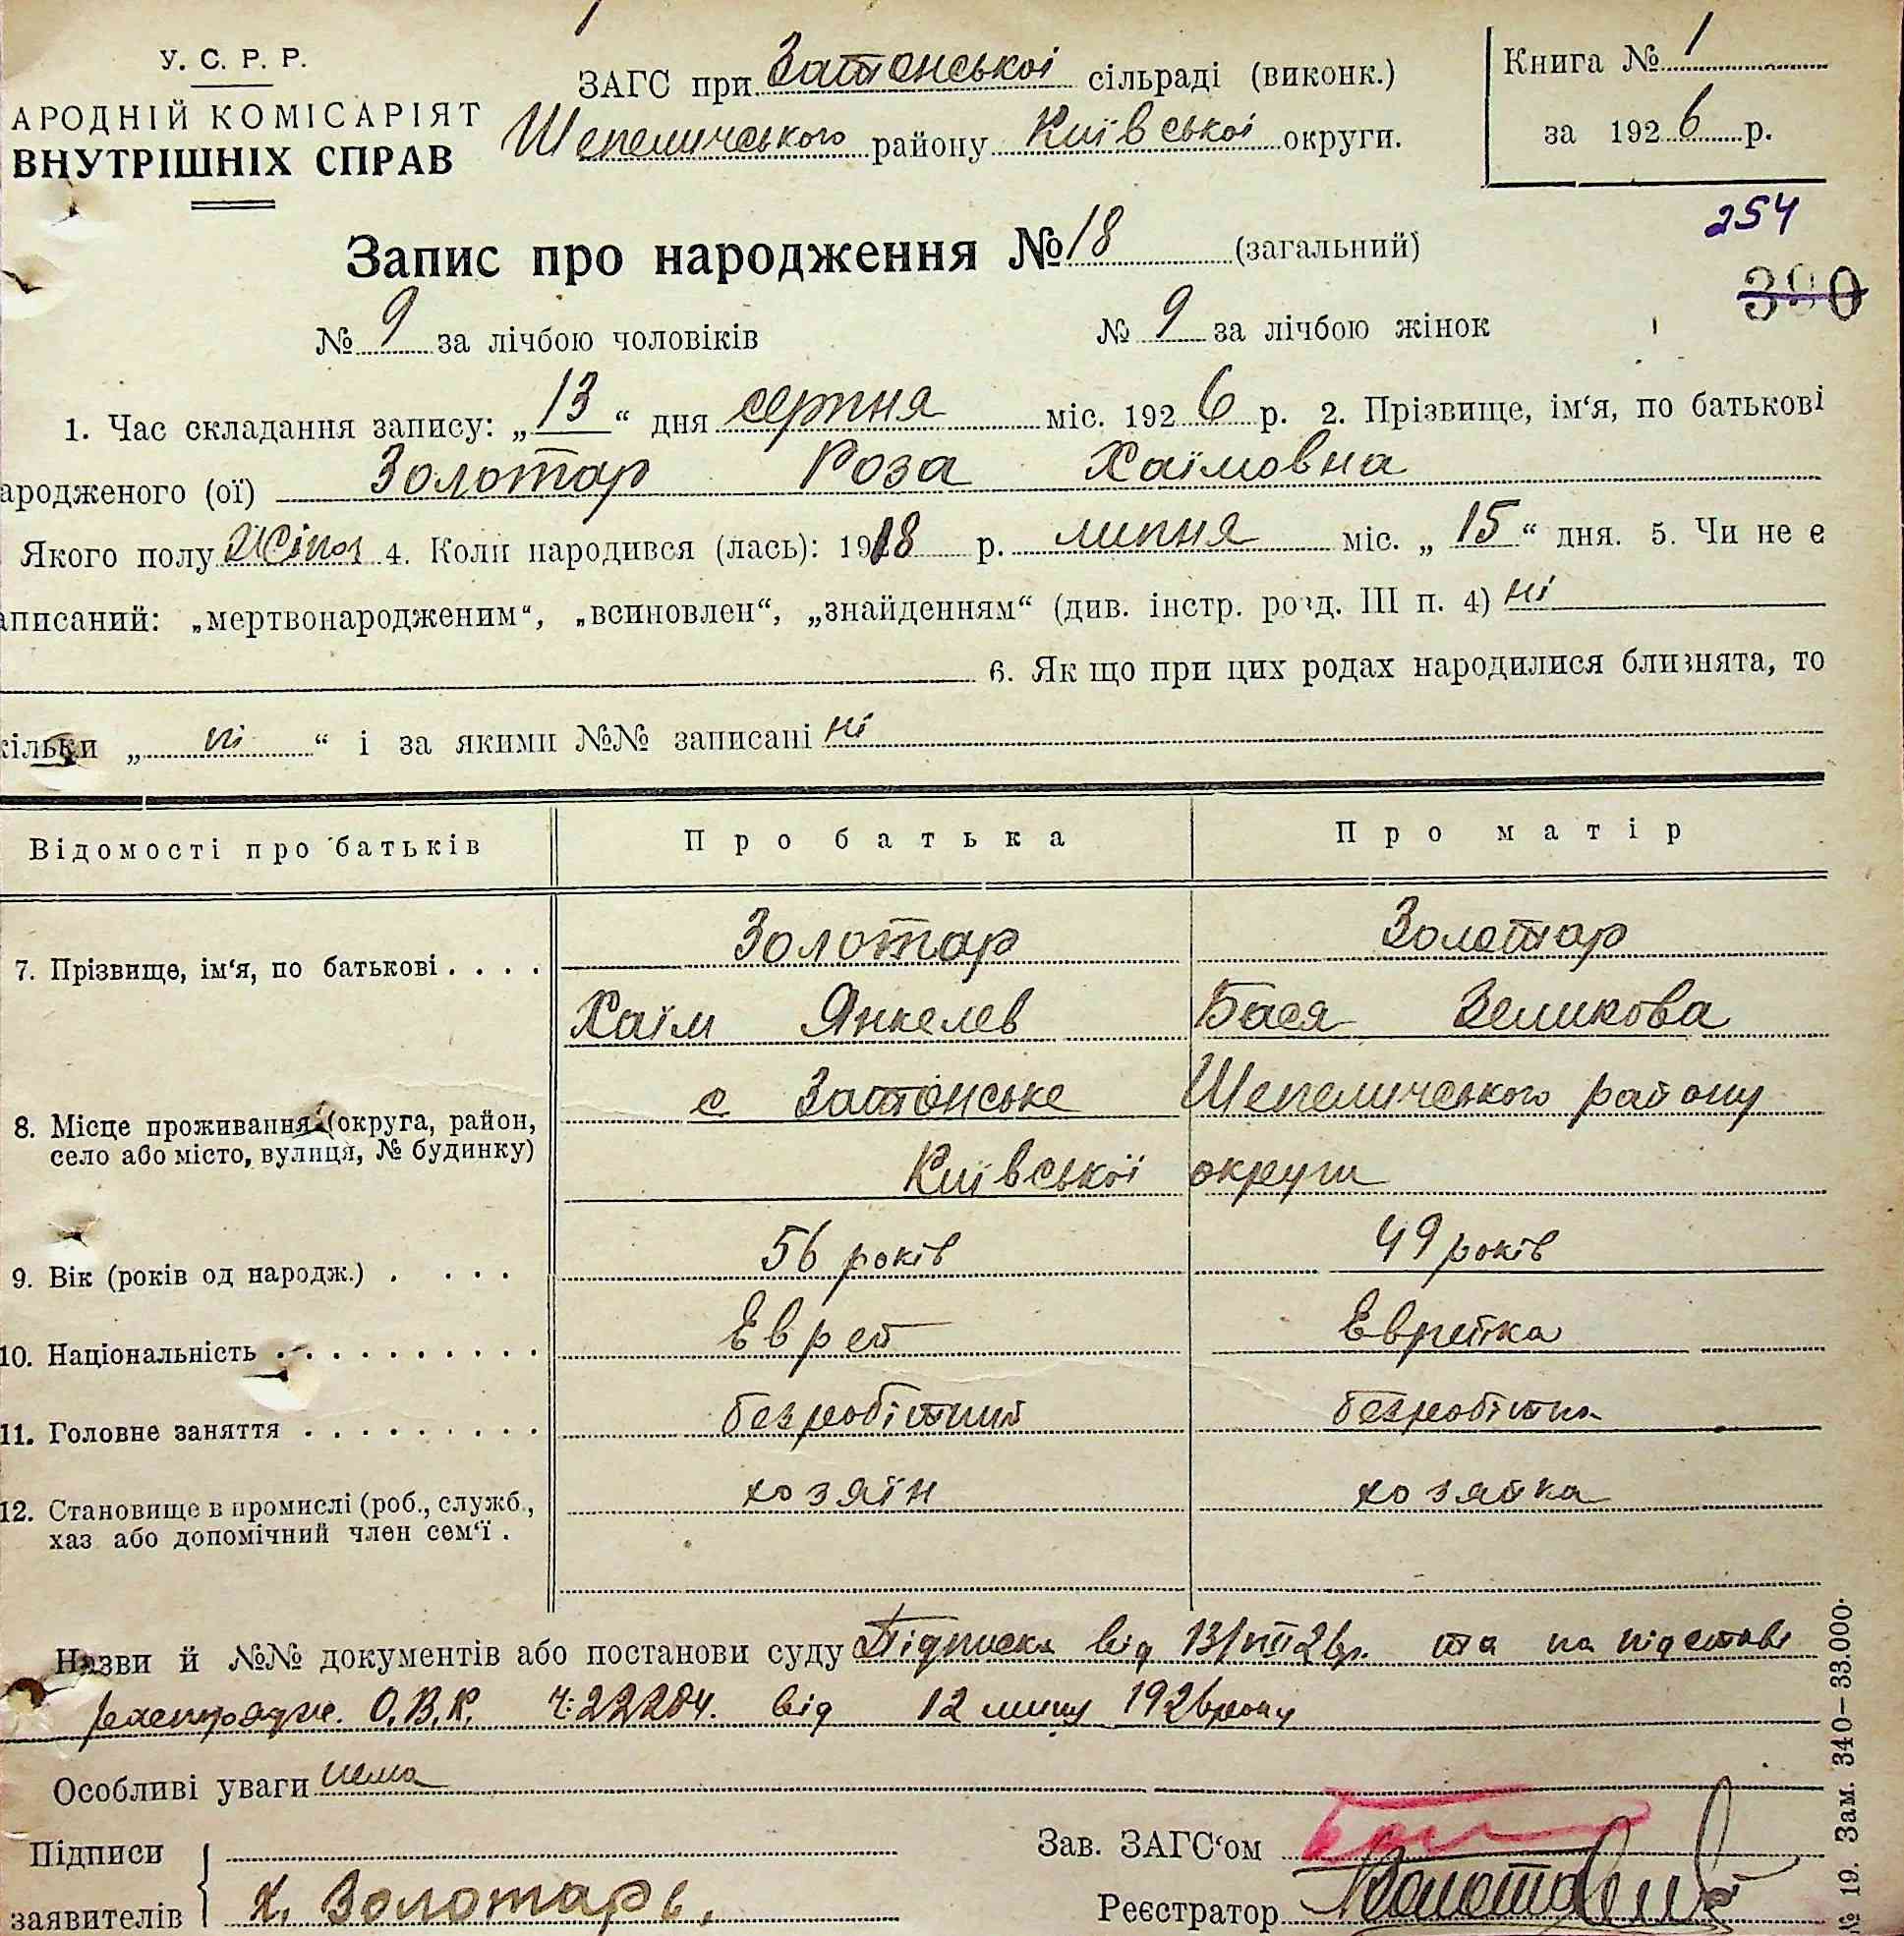 У. С. Р. Р.
АРОДНІЙ КОМІСАРІЯТ
ВНУТРІШНІХ СПРАВ
ЗАГС при Затонської сільраді (виконк.)
Шепеличського району Київської округи.
Книга № 1
за 1926 р.
254
390
Запис про народження № 18 (загальний)
№ 9 за лічбою чоловіків № 9 за лічбою жінок
1. Час складання запису: „13“ дня серпня міс. 1926 р. 2. Прізвище, ім‘я, по батькові
ародженого (ої) Золотар Роза Хаїмовна
Якого полу Жіноч 4. Коли народився (лась): 1918 р. липня міс. „15“ дня. 5. Чи не є
аписаний: „мертвонародженим“, „всиновлен“, „знайденням“ (див. інстр. розд. III п. 4) ні
6. Як що при цих родах народилися близнята, то
кільки „ні“ і за якими №№ записані ні
Відомості про батьків Про батька Про матір
7. Прізвище, ім‘я, по батькові . . . . Золотар Золотар
Хаїм Янкелев Бася Зеликова
8. Місце проживання (округа, район, село або місто, вулиця, № будинку) с Затонське Шепеличського району
Київської округи
9. Вік (років од народж.) . . . . 56 років 49 років
10. Національність . . . . . . . . . . Еврей Еврейка
11. Головне заняття . . . . . . . . . безробітний безробітна
12. Становище в промислі (роб., служб., хаз або допомічний член сем‘ї . хозяїн хозяйка
Назви й №№ документів або постанови суду Підписка від 13/VIII 26р. та на підставі
розпорядж. О.В.К. Ч: 22284. від 12 липня 1926 року
Особливі уваги нема
Підписи
заявителів Х. Золотарь.
Зав. ЗАГС‘ом
Реєстратор
№ 19. Зам. 340—33.000.